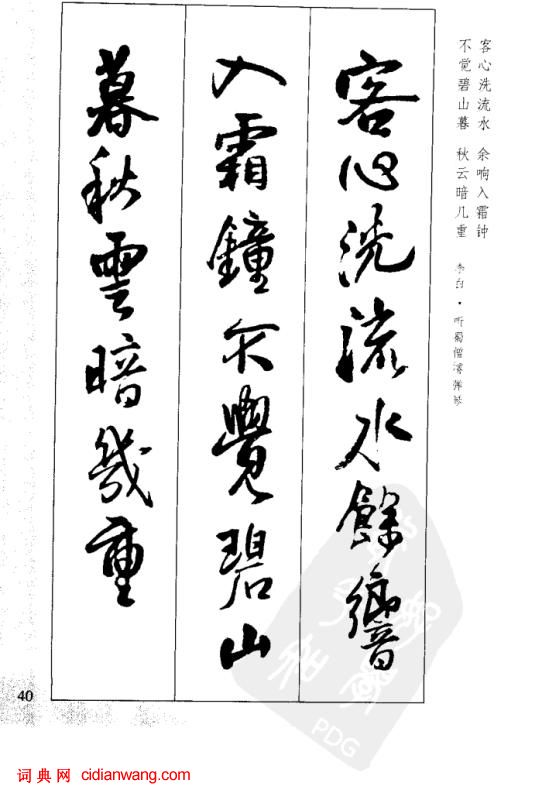 客心洗流水 余响入霜钟
不觉碧山暮 秋云暗几重
李白·听蜀僧濬弹琴
客心洗流水餘響
入霜鐘不覺碧山
暮秋雲暗幾重
40
PDG
词典网 cidianwang.com